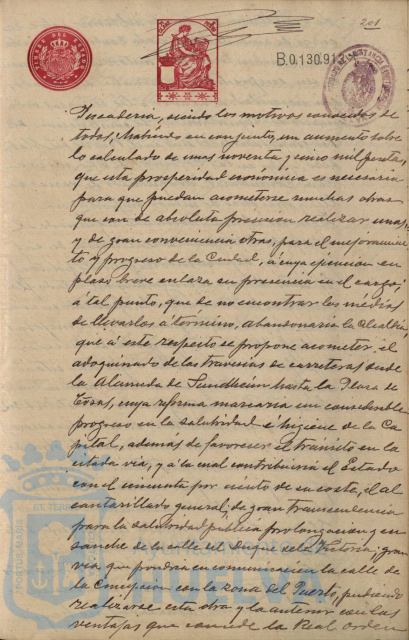 201
B.0.130.912
Pescadería, siendo los motivos conocidos de
todos, habiendo en conjunto, un aumento sobre
lo calculado de unas noventa y cinco mil pesetas,
que esta prosperidad económica es necesaria
para que puedan acometerse muchas obras
que son de absoluta precision realizar unas,
y de gran conveniencia otras, para el mejoramien
to y progreso de la Ciudad, á cuya ejecucion en
plazo breve enlaza su presencia en el cargo,
á tal punto, que de no encontrar los medios
de llevarlos á término, abandonaría la Alcaldía,
que á este respecto se propone acometer el
adoquinado de las travesías de carreteras desde
la Alameda de Sundheim hasta la Plaza de
Toros, cuya reforma marcaria un considerable
progreso en la salubridad é higiene de la Ca
pital, ademas de favorecer el tránsito en la
citada vía, y á la cual contribuiria el Estado
con el cincuenta por ciento de su coste, el al
cantarillado general, de gran transcendencia
para la salubridad pública prolongacion y en
sanche de la calle del Duque de la Victoria, gran
vía que pondria en comunicacion la calle de
la Concepcion con la zona del Puerto, pudiendo
realizarse esta obra y la anterior con las
ventajas que concede la Real orden